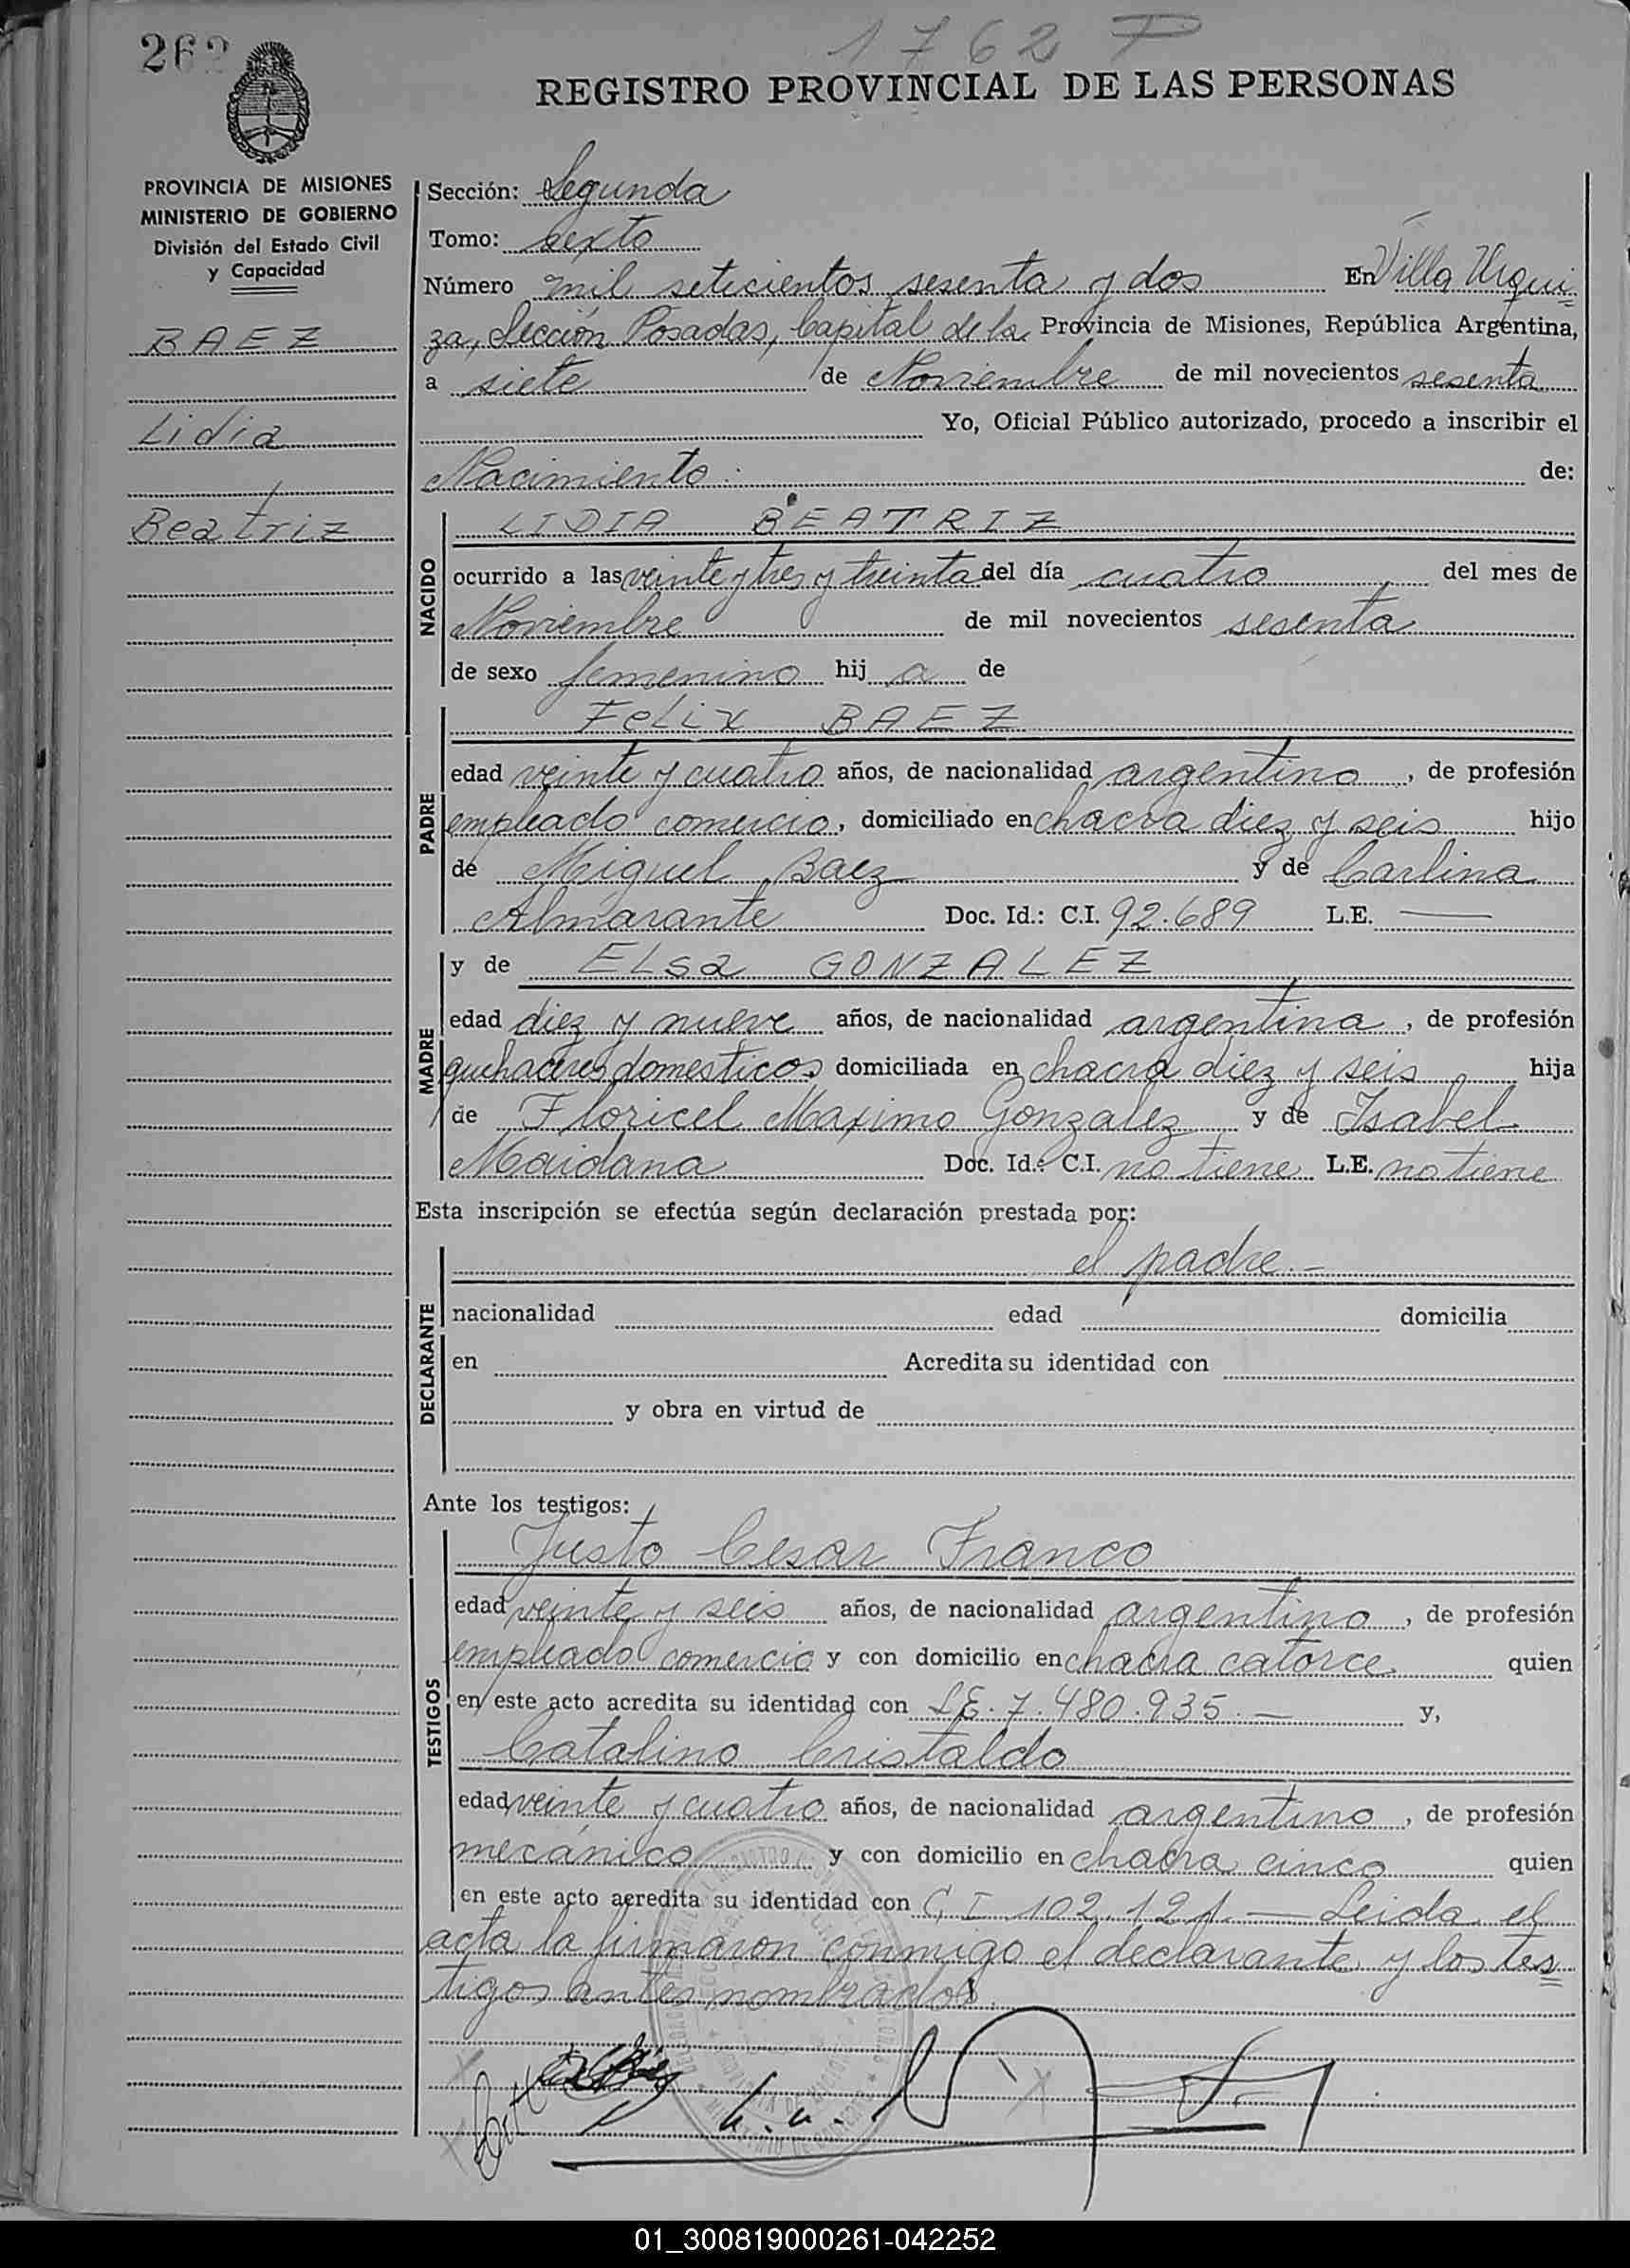 1762 P
262
REGISTRO PROVINCIAL DE LAS PERSONAS
PROVINCIA DE MISIONES
MINISTERIO DE GOBIERNO
División del Estado Civil
y Capacidad
BAEZ
Lidia
Beatriz
Sección: Segunda
Tomo: sexto
Número mil setecientos sesenta y dos En Villa Urqui=
za, Sección Posadas, Capital de la Provincia de Misiones, República Argentina,
a siete de Noviembre de mil novecientos sesenta
Yo, Oficial Público autorizado, procedo a inscribir el
Nacimiento de:
NACIDO
LIDIA BEATRIZ
ocurrido a las veinte y tres y treinta del día cuatro del mes de
Noviembre de mil novecientos sesenta
de sexo femenino hij a de
PADRE
Felix BAEZ
edad veinte y cuatro años, de nacionalidad argentino, de profesión
empleado comercio, domiciliado en chacra diez y seis hijo
de Miguel Baez y de Carlina
Almarante Doc. Id.: C.I. 92.689 L.E. —
MADRE
y de ELsa GONZALEZ
edad diez y nueve años, de nacionalidad argentina, de profesión
quehaceres domesticos domiciliada en chacra diez y seis hija
de Floricel Maximo Gonzalez y de Isabel
Maidana Doc. Id.: C.I. no tiene L.E. no tiene
Esta inscripción se efectúa según declaración prestada por:
DECLARANTE
el padre.-
nacionalidad edad domicilia
en Acredita su identidad con
y obra en virtud de
Ante los testigos:
TESTIGOS
Justo Cesar Franco
edad veinte y seis años, de nacionalidad argentino, de profesión
empleado comercio y con domicilio en chacra catorce quien
en este acto acredita su identidad con L.E. 7.480.935.— y,
Catalino Cristaldo
edad veinte y cuatro años, de nacionalidad argentino, de profesión
mecánico y con domicilio en chacra cinco quien
en este acto acredita su identidad con C.I 102.121.— Leida el
acta la firmaron conmigo el declarante y los tes=
tigos antes nombrados.
01_300819000261-042252